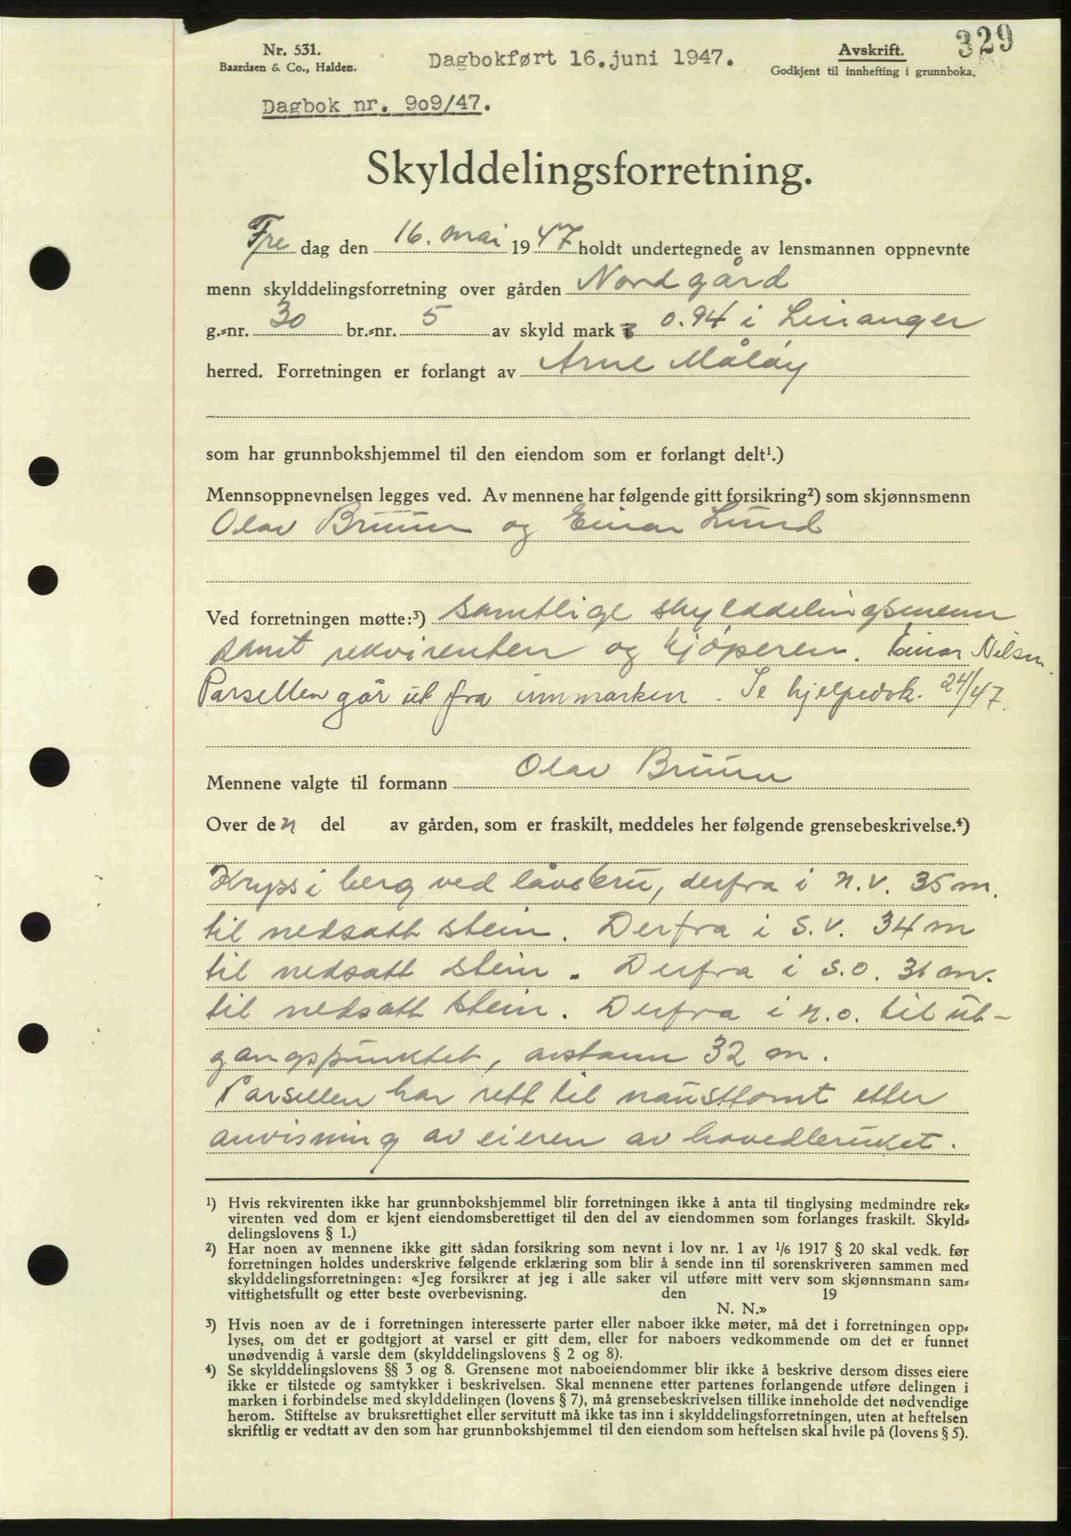 329
Nr. 531.
Baardsen & Co., Halden.
Dagbokført 16. juni 1947.
Avskrift.
Godkjent til innhefting i grunnboka.
Dagbok nr. 909/47.
Skylddelingsforretning.
Fre dag den 16. mai 1947 holdt undertegnede av lensmannen oppnevnte
menn skylddelingsforretning over gården Nordgård
g.-nr. 30 br.-nr. 5 av skyld mark 0.94 i Leiranger
herred. Forretningen er forlangt av Arne Måløy
som har grunnbokshjemmel til den eiendom som er forlangt delt¹.)
Mennsoppnevnelsen legges ved. Av mennene har følgende gitt forsikring²) som skjønnsmenn
Olav Bruun og Einar Lund
Ved forretningen møtte:³) samtlige skylddelingsmenn
samt rekvirenten og kjøperen. Einar Nilsen.
Parsellen går ut fra innmarken. Se hjelpedok. 24/47.
Mennene valgte til formann Olav Bruun
Over den del av gården, som er fraskilt, meddeles her følgende grensebeskrivelse.⁴)
Kryss i berg ved låvebru, derfra i n.v. 35 m.
til nedsatt stein. Derfra i s.v. 34 m
til nedsatt stein. Derfra i s.o. 31 m.
til nedsatt stein. Derfra i n.o. til ut-
gangspunktet, avstann 32 m.
Parsellen har rett til nausttomt etter
anvisning av eieren av hovedbruket.
¹) Hvis rekvirenten ikke har grunnbokshjemmel blir forretningen ikke å anta til tinglysing medmindre rek-
virenten ved dom er kjent eiendomsberettiget til den del av eiendommen som forlanges fraskilt. Skyld-
delingslovens § 1.)
²) Har noen av mennene ikke gitt sådan forsikring som nevnt i lov nr. 1 av 1/6 1917 § 20 skal vedk. før
forretningen holdes underskrive følgende erklæring som blir å sende inn til sorenskriveren sammen med
skylddelingsforretningen: «Jeg forsikrer at jeg i alle saker vil utføre mitt verv som skjønnsmann sam-
vittighetsfullt og etter beste overbevisning. den 19
N. N.»
³) Hvis noen av de i forretningen interesserte parter eller naboer ikke møter, må det i forretningen opp-
lyses, om det er godtgjort at varsel er gitt dem, eller for naboers vedkommende om det er funnet
unødvendig å varsle dem (skylddelingslovens § 2 og 8).
⁴) Se skylddelingslovens §§ 3 og 8. Grensene mot naboeiendommer blir ikke å beskrive dersom disses eiere
ikke er tilstede og samtykker i beskrivelsen. Skal mennene etter partenes forlangende utføre delingen i
marken i forbindelse med skylddelingen (lovens § 7), må grensebeskrivelsen tillike inneholde det nødvendige
herom. Stiftelse av bruksrettighet eller servitutt må ikke tas inn i skylddelingsforretningen, uten at heftelsen
skriftlig er vedtatt av den som har grunnbokshjemmel til den eiendom som heftelsen skal hvile på (lovens § 5).